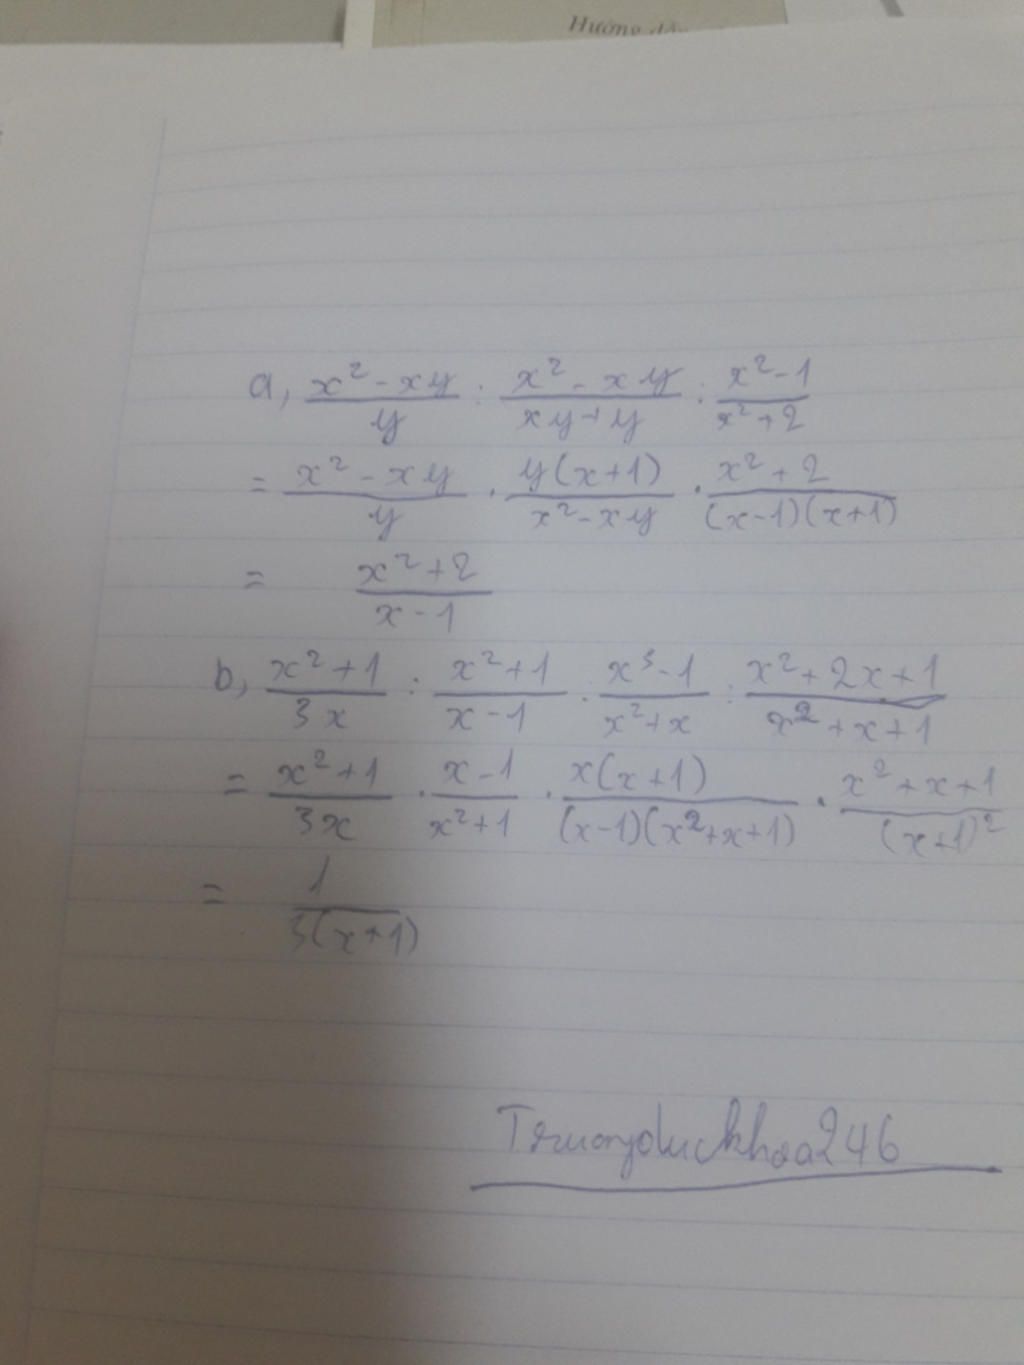 Hướng dẫn
a, \frac{x^2-xy}{y} : \frac{x^2-xy}{xy+y} : \frac{x^2-1}{x^2+2}
= \frac{x^2-xy}{y} . \frac{y(x+1)}{x^2-xy} . \frac{x^2+2}{(x-1)(x+1)}
= \frac{x^2+2}{x-1}
b, \frac{x^2+1}{3x} : \frac{x^2+1}{x-1} : \frac{x^3-1}{x^2+x} : \frac{x^2+2x+1}{x^2+x+1}
= \frac{x^2+1}{3x} . \frac{x-1}{x^2+1} . \frac{x(x+1)}{(x-1)(x^2+x+1)} . \frac{x^2+x+1}{(x+1)^2}
= \frac{1}{3(x+1)}
Truongduckhoa246